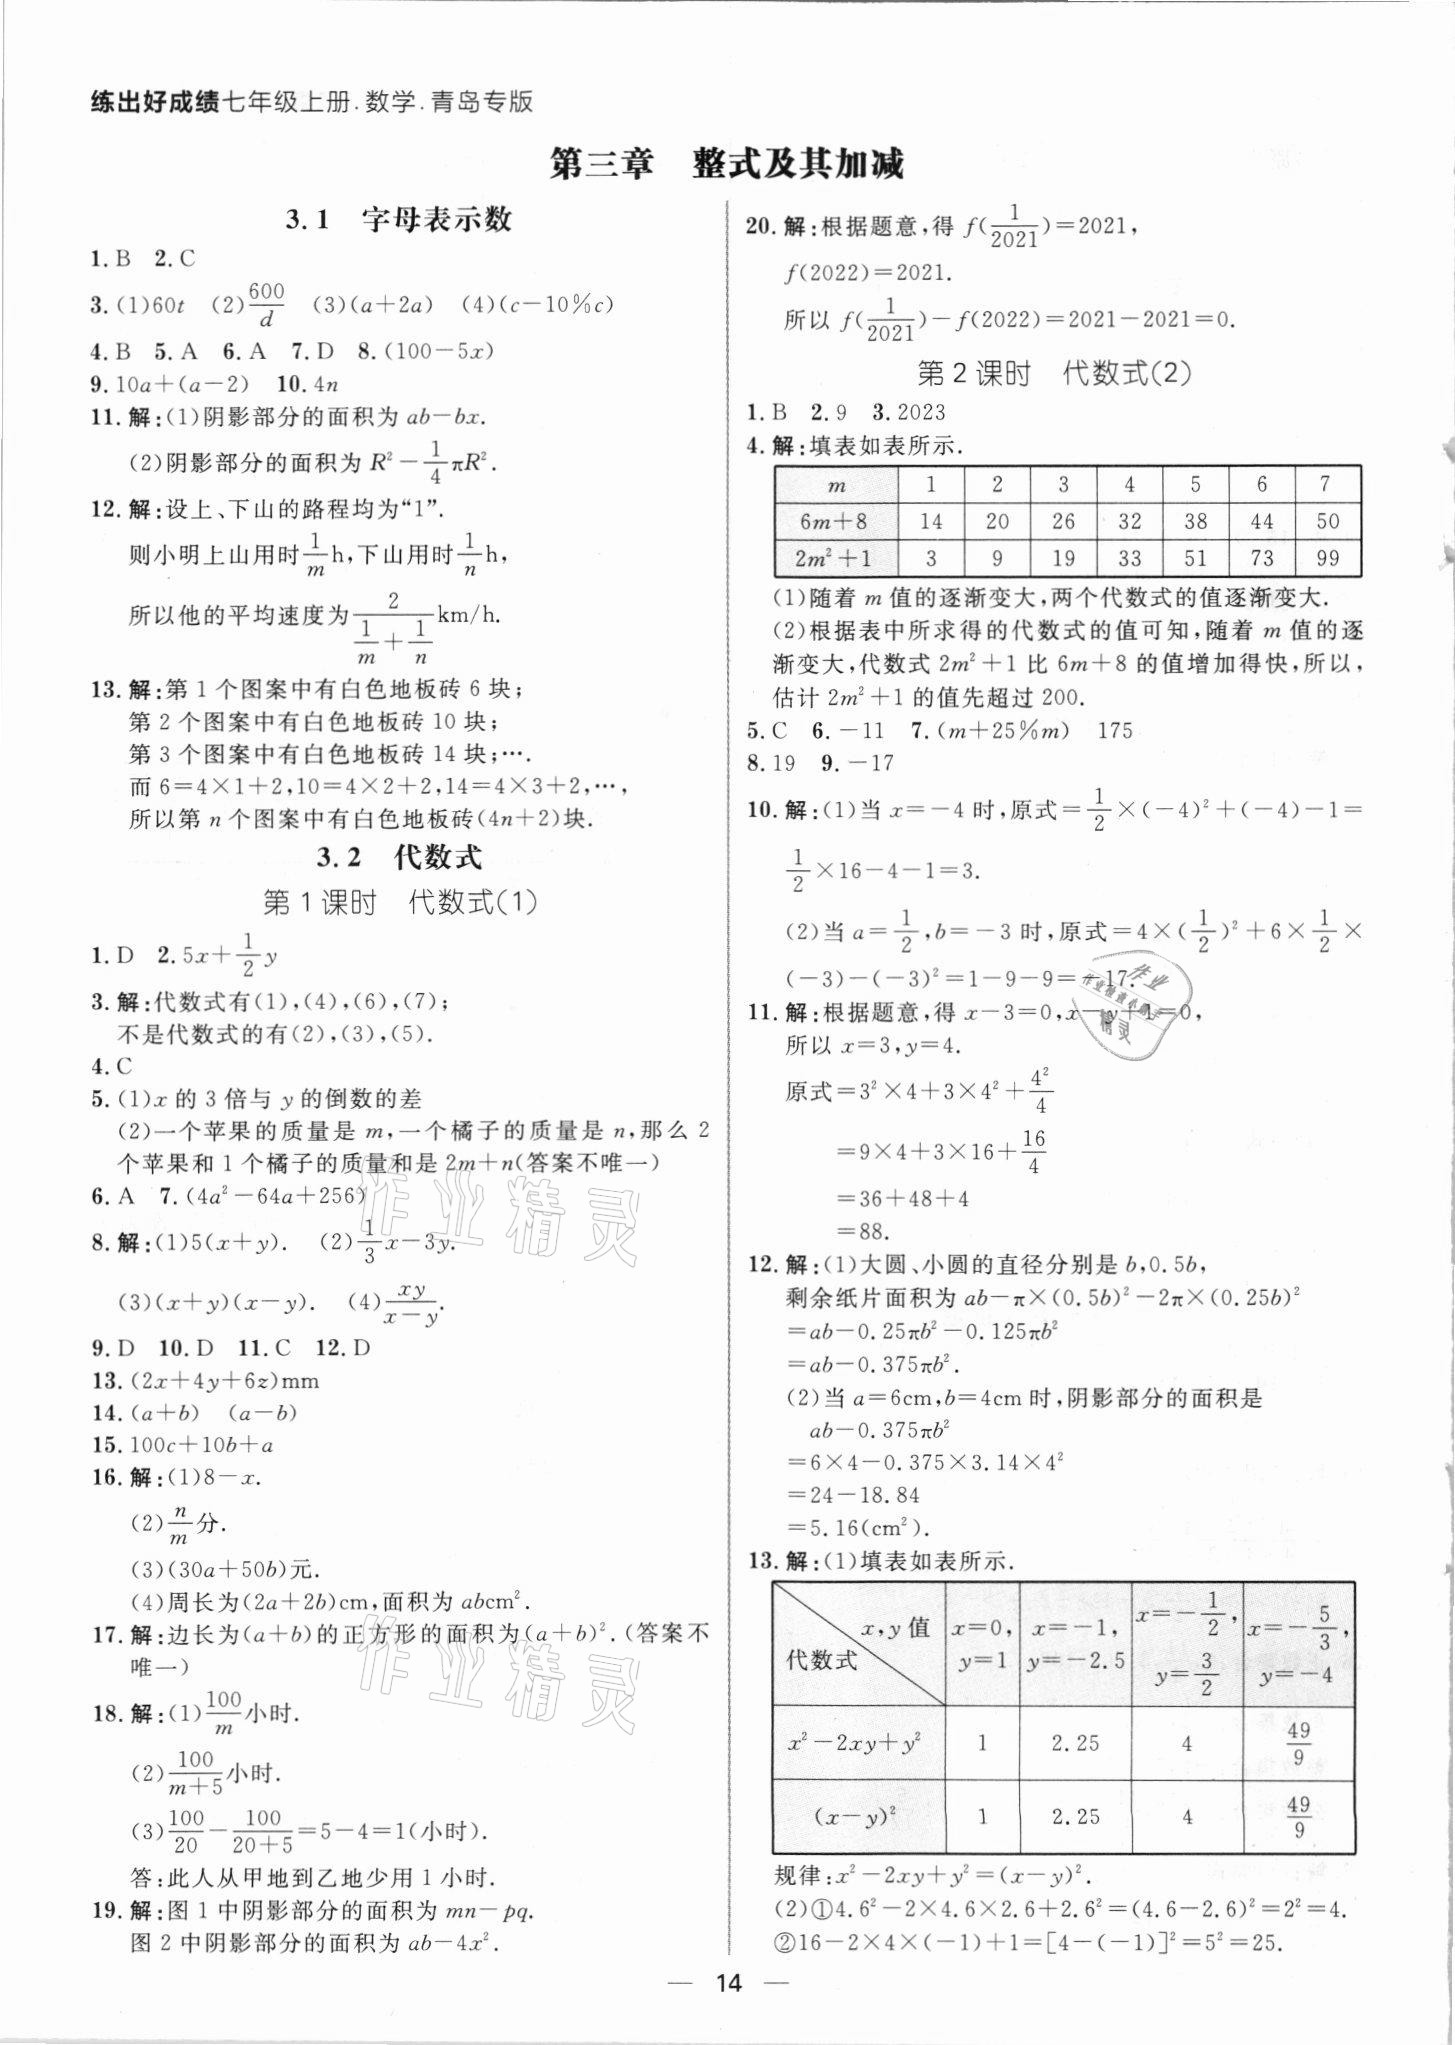 练出好成绩七年级上册.数学.青岛专版
第三章 整式及其加减
3.1 字母表示数
1.B 2.C
3.(1)60t (2)600/d (3)(a+2a) (4)(c-10%c)
4.B 5.A 6.A 7.D 8.(100-5x)
9.10a+(a-2) 10.4n
11.解:(1)阴影部分的面积为 ab-bx.
(2)阴影部分的面积为 R²-1/4πR².
12.解:设上、下山的路程均为“1”.
则小明上山用时1/m h,下山用时1/n h,
所以他的平均速度为2/(1/m+1/n)km/h.
13.解:第 1 个图案中有白色地板砖 6 块;
第 2 个图案中有白色地板砖 10 块;
第 3 个图案中有白色地板砖 14 块;….
而 6=4×1+2,10=4×2+2,14=4×3+2,…,
所以第 n 个图案中有白色地板砖(4n+2)块.
3.2 代数式
第 1 课时 代数式(1)
1.D 2.5x+1/2y
3.解:代数式有(1),(4),(6),(7);
不是代数式的有(2),(3),(5).
4.C
5.(1)x 的 3 倍与 y 的倒数的差
(2)一个苹果的质量是 m,一个橘子的质量是 n,那么 2
个苹果和 1 个橘子的质量和是 2m+n(答案不唯一)
6.A 7.(4a²-64a+256)
8.解:(1)5(x+y). (2)1/3x-3y.
(3)(x+y)(x-y). (4)xy/(x-y).
9.D 10.D 11.C 12.D
13.(2x+4y+6z)mm
14.(a+b) (a-b)
15.100c+10b+a
16.解:(1)8-x.
(2)n/m分.
(3)(30a+50b)元.
(4)周长为(2a+2b)cm,面积为 abcm².
17.解:边长为(a+b)的正方形的面积为(a+b)².(答案不
唯一)
18.解:(1)100/m小时.
(2)100/(m+5)小时.
(3)100/20-100/(20+5)=5-4=1(小时).
答:此人从甲地到乙地少用 1 小时.
19.解:图 1 中阴影部分的面积为 mn-pq.
图 2 中阴影部分的面积为 ab-4x².
20.解:根据题意,得 f(1/2021)=2021,
f(2022)=2021.
所以 f(1/2021)-f(2022)=2021-2021=0.
第 2 课时 代数式(2)
1.B 2.9 3.2023
4.解:填表如表所示.
m 1 2 3 4 5 6 7
6m+8 14 20 26 32 38 44 50
2m²+1 3 9 19 33 51 73 99
(1)随着 m 值的逐渐变大,两个代数式的值逐渐变大.
(2)根据表中所求得的代数式的值可知,随着 m 值的逐
渐变大,代数式 2m²+1 比 6m+8 的值增加得快,所以,
估计 2m²+1 的值先超过 200.
5.C 6.-11 7.(m+25%m) 175
8.19 9.-17
10.解:(1)当 x=-4 时,原式=1/2×(-4)²+(-4)-1=
1/2×16-4-1=3.
(2)当 a=1/2,b=-3 时,原式=4×(1/2)²+6×1/2×
(-3)-(-3)²=1-9-9=-17.
11.解:根据题意,得 x-3=0,x-y+1=0,
所以 x=3,y=4.
原式=3²×4+3×4²+4²/4
=9×4+3×16+16/4
=36+48+4
=88.
12.解:(1)大圆、小圆的直径分别是 b,0.5b,
剩余纸片面积为 ab-π×(0.5b)²-2π×(0.25b)²
=ab-0.25πb²-0.125πb²
=ab-0.375πb².
(2)当 a=6cm,b=4cm 时,阴影部分的面积是
ab-0.375πb²
=6×4-0.375×3.14×4²
=24-18.84
=5.16(cm²).
13.解:(1)填表如表所示.
x,y 值 代数式 x=0,y=1 x=-1,y=-2.5 x=-1/2,y=3/2 x=-5/3,y=-4
x²-2xy+y² 1 2.25 4 49/9
(x-y)² 1 2.25 4 49/9
规律:x²-2xy+y²=(x-y)².
(2)①4.6²-2×4.6×2.6+2.6²=(4.6-2.6)²=2²=4.
②16-2×4×(-1)+1=[4-(-1)]²=5²=25.
— 14 —
作业精灵
作业精灵
作业
精灵